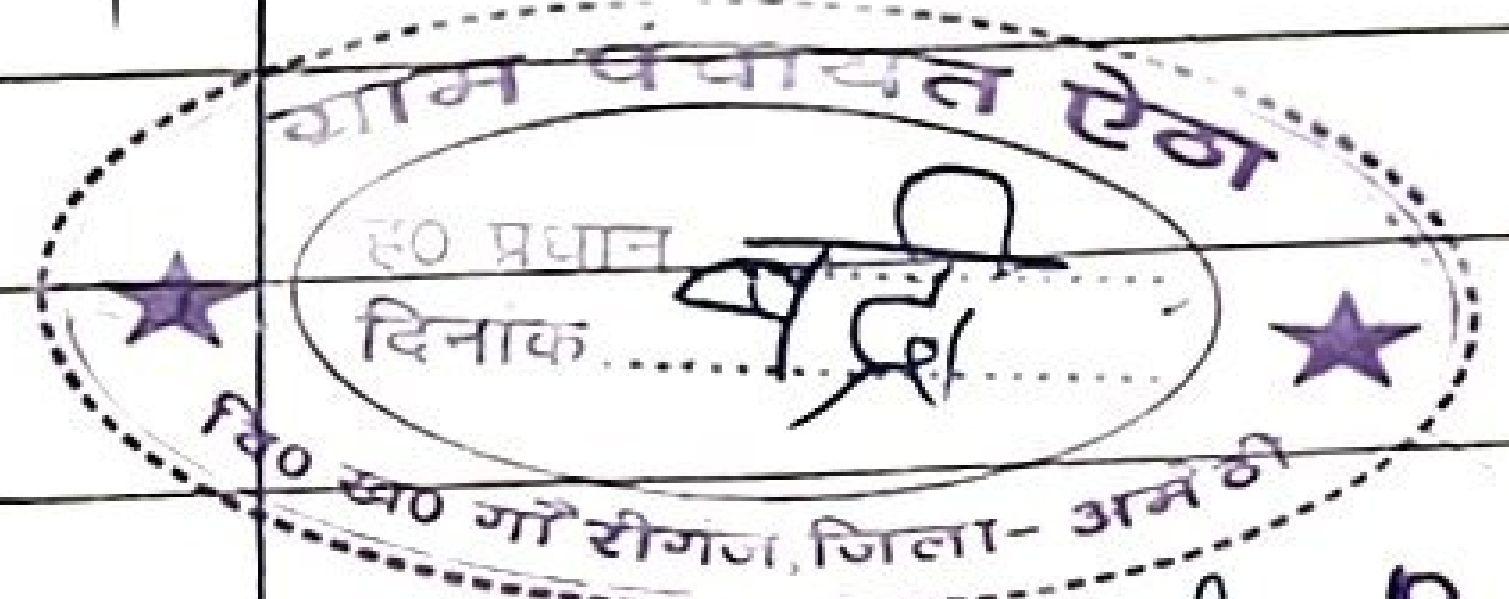 ग्राम पंचायत ऐठा
ह0 प्रधान
दिनांक
वि0 ख0 गौरीगंज, जिला- अमेठी